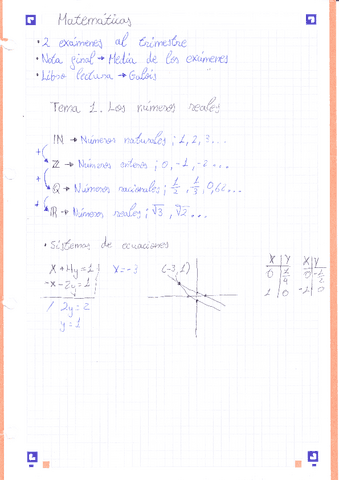 Matemáticas
• 2 exámenes al trimestre
• Nota final → Media de los exámenes
• Libro lectura → Galois
Tema 1. Los números reales
ℕ → Números naturales ; 1, 2, 3...
+ ℤ → Números enteros ; 0, -1, -2...
+ ℚ → Números racionales ; 1/2, 1/3, 0,6...
+ ℝ → Números reales ; √3, √2...
• Sistemas de ecuaciones
x + 4y = 1 x = -3 (-3, 1)
-x - 2y = 1
/ 2y = 2
y = 1
X | Y X | Y
0 | 1/4 0 | -1/2
1 | 0 -1 | 0